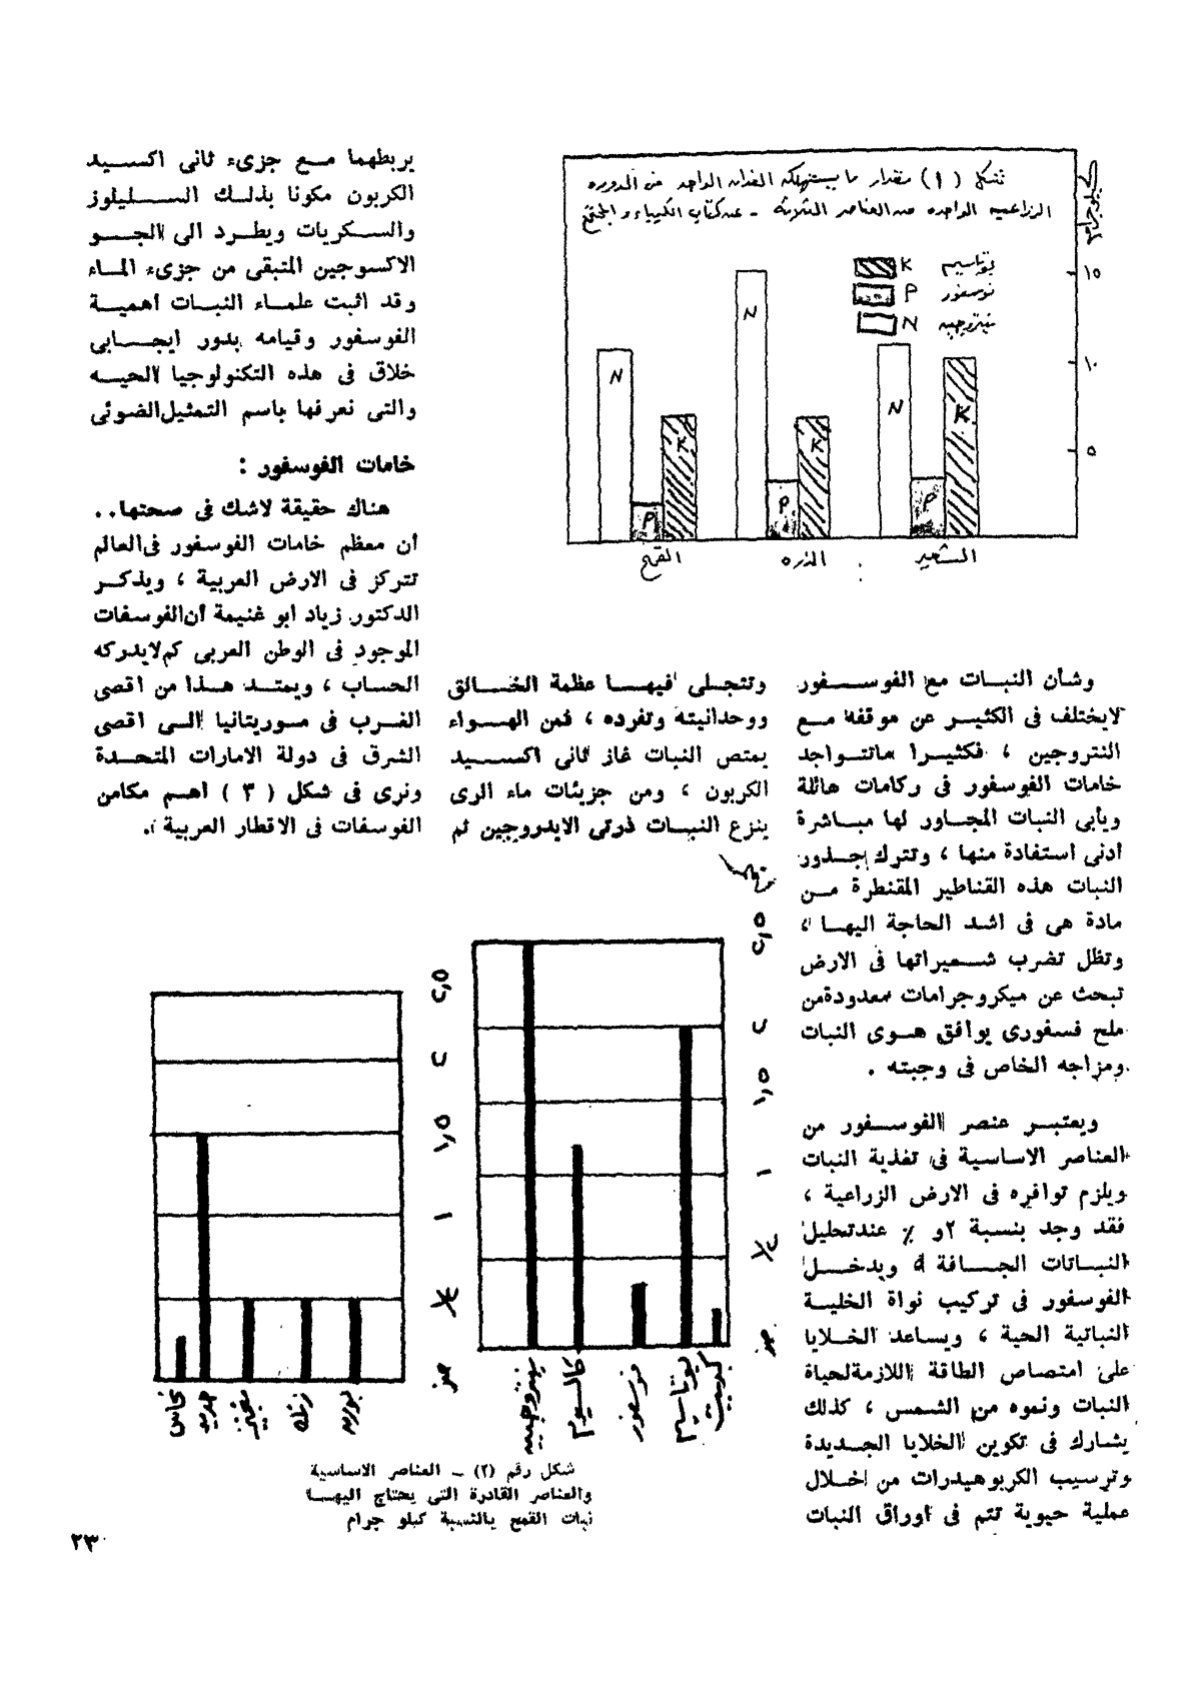 شكل (١) مقدار ما يستهلكه الفدان الواحد من الدوره
الزراعيه الواحده من العناصر الثلاثه - عن كتاب الكيمياء والمجتمع
كيلوجرام
بوتاسيم K
فوسفور P
نيتروجين N
١٥
١٠
٥
N
P
K
N
P
K
N
P
K
القمح
الذره
الشعير
وشأن النبات مع الفوسفور
لايختلف فى الكثير عن موقفه مع
النتروجين ، فكثيرا ماتتواجد
خامات الفوسفور فى ركامات هائلة
ويأبى النبات المجاور لها مباشرة
أدنى استفادة منها ، وتترك جذور
النبات هذه القناطير المقنطرة من
مادة هى فى اشد الحاجة اليها ،
وتظل تضرب شعيراتها فى الارض
تبحث عن ميكروجرامات معدودةمن
ملح فسفورى يوافق هوى النبات
ومزاجه الخاص فى وجبته .
ويعتبر عنصر الفوسفور من
العناصر الاساسية فى تغذية النبات
ويلزم توافره فى الارض الزراعية ،
فقد وجد بنسبة ٢و ٪ عندتحليل
النباتات الجافة ويدخل
الفوسفور فى تركيب نواة الخلية
النباتية الحية ، ويساعد الخلايا
على امتصاص الطاقة اللازمةلحياة
النبات ونموه من الشمس ، كذلك
يشارك فى تكوين الخلايا الجديدة
وترسيب الكربوهيدرات من خلال
عملية حيوية تتم فى أوراق النبات
وتتجلى فيها عظمة الخالق
ووحدانيته وتفرده ، فمن الهواء
يمتص النبات غاز ثانى اكسيد
الكربون ، ومن جزيئات ماء الرى
ينزع النبات ذرتى الايدروجين ثم
يربطهما مع جزىء ثانى اكسيد
الكربون مكونا بذلك السليلوز
والسكريات ويطرد الى الجو
الاكسوجين المتبقى من جزىء الماء
وقد اثبت علماء النبات اهمية
الفوسفور وقيامه بدور ايجابى
خلاق فى هذه التكنولوجيا الحيه
والتى نعرفها باسم التمثيل الضوئى
خامات الفوسفور :
هناك حقيقة لاشك فى صحتها..
أن معظم خامات الفوسفور فىالعالم
تتركز فى الارض العربية ، ويذكر
الدكتور زياد ابو غنيمة أنالفوسفات
الموجود فى الوطن العربى كم لايدركه
الحساب ، ويمتد هذا من اقصى
الغرب فى موريتانيا الى اقصى
الشرق فى دولة الامارات المتحدة
ونرى فى شكل ( ٣ ) اهم مكامن
الفوسفات فى الاقطار العربية .
٢,٥
٢
١,٥
١
١/٢
صفر
نيتروجين
كالسيوم
فوسفور
بوتاسيم
كبريت
٢,٥
٢
١,٥
١
١/٢
صفر
نحاس
حديد
منجنيز
زنك
بورون
شكل رقم (٢) ــ العناصر الاساسية
والعناصر القادرة التى يحتاج اليها
نبات القمح بالنسبة كيلو جرام
٢٣